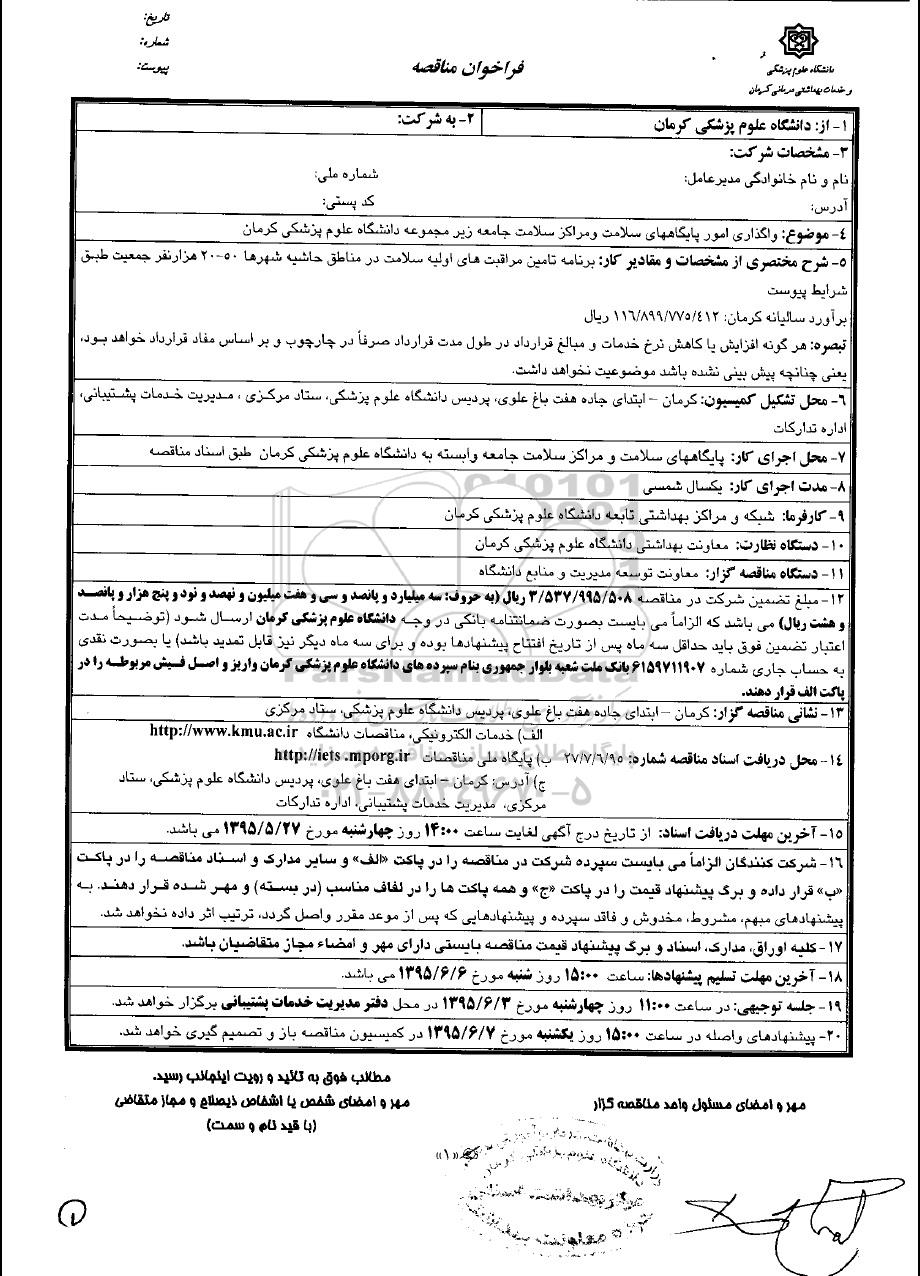 تاریخ:
شماره:
پیوست:
دانشگاه علوم پزشکی
و خدمات بهداشتی درمانی کرمان
فراخوان مناقصه
۱- از: دانشگاه علوم پزشکی کرمان
۲- به شرکت:
۳- مشخصات شرکت:
نام و نام خانوادگی مدیرعامل: شماره ملی:
آدرس: کد پستی:
۴- موضوع: واگذاری امور پایگاههای سلامت ومراکز سلامت جامعه زیر مجموعه دانشگاه علوم پزشکی کرمان
۵- شرح مختصری از مشخصات و مقادیر کار: برنامه تامین مراقبت های اولیه سلامت در مناطق حاشیه شهرها ۵۰-۲۰ هزارنفر جمعیت طبق
شرایط پیوست
برآورد سالیانه کرمان: ۱۱٦/۸۹۹/۷۷۵/٤۱۲ ریال
تبصره: هر گونه افزایش یا کاهش نرخ خدمات و مبالغ قرارداد در طول مدت قرارداد صرفاً در چارچوب و بر اساس مفاد قرارداد خواهد بود،
یعنی چنانچه پیش بینی نشده باشد موضوعیت نخواهد داشت.
۶- محل تشکیل کمیسیون: کرمان – ابتدای جاده هفت باغ علوی، پردیس دانشگاه علوم پزشکی، ستاد مرکزی ، مدیریت خدمات پشتیبانی،
اداره تدارکات
۷- محل اجرای کار: پایگاههای سلامت و مراکز سلامت جامعه وابسته به دانشگاه علوم پزشکی کرمان طبق اسناد مناقصه
۸- مدت اجرای کار: یکسال شمسی
۹- کارفرما: شبکه و مراکز بهداشتی تابعه دانشگاه علوم پزشکی کرمان
۱۰- دستگاه نظارت: معاونت بهداشتی دانشگاه علوم پزشکی کرمان
۱۱- دستگاه مناقصه گزار: معاونت توسعه مدیریت و منابع دانشگاه
۱۲- مبلغ تضمین شرکت در مناقصه ۳/۵۳۷/۹۹۵/۵۰۸ ریال (به حروف: سه میلیارد و پانصد و سی و هفت میلیون و نهصد و نود و پنج هزار و پانصد
و هشت ریال) می باشد که الزاماً می بایست بصورت ضمانتنامه بانکی در وجه دانشگاه علوم پزشکی کرمان ارسال شود (توضیحاً مدت
اعتبار تضمین فوق باید حداقل سه ماه پس از تاریخ افتتاح پیشنهادها بوده و برای سه ماه دیگر نیز قابل تمدید باشد) یا بصورت نقدی
به حساب جاری شماره ۶۱۵۹۷۱۱۹۰۷ بانک ملت شعبه بلوار جمهوری بنام سپرده های دانشگاه علوم پزشکی کرمان واریز و اصل فیش مربوطه را در
پاکت الف قرار دهند.
۱۳- نشانی مناقصه گزار: کرمان – ابتدای جاده هفت باغ علوی، پردیس دانشگاه علوم پزشکی، ستاد مرکزی
الف) خدمات الکترونیکی، مناقصات دانشگاه http://www.kmu.ac.ir
۱۴- محل دریافت اسناد مناقصه شماره: ۲۷/۷/٦/۹۵ ب) پایگاه ملی مناقصات http://iets .mporg.ir
ج) آدرس: کرمان – ابتدای هفت باغ علوی، پردیس دانشگاه علوم پزشکی، ستاد
مرکزی، مدیریت خدمات پشتیبانی، اداره تدارکات
۱۵- آخرین مهلت دریافت اسناد: از تاریخ درج آگهی لغایت ساعت ۱۴:۰۰ روز چهارشنبه مورخ ۱۳۹۵/۵/۲۷ می باشد.
۱۶- شرکت کنندگان الزاماً می بایست سپرده شرکت در مناقصه را در پاکت «الف» و سایر مدارک و اسناد مناقصه را در پاکت
«ب» قرار داده و برگ پیشنهاد قیمت را در پاکت «ج» و همه پاکت ها را در لفاف مناسب (در بسته) و مهر شده قرار دهند. به
پیشنهادهای مبهم، مشروط، مخدوش و فاقد سپرده و پیشنهادهایی که پس از موعد مقرر واصل گردد، ترتیب اثر داده نخواهد شد.
۱۷- کلیه اوراق، مدارک، اسناد و برگ پیشنهاد قیمت مناقصه بایستی دارای مهر و امضاء مجاز متقاضیان باشد.
۱۸- آخرین مهلت تسلیم پیشنهادها: ساعت ۱۵:۰۰ روز شنبه مورخ ۱۳۹۵/۶/۶ می باشد.
۱۹- جلسه توجیهی: در ساعت ۱۱:۰۰ روز چهارشنبه مورخ ۱۳۹۵/۶/۳ در محل دفتر مدیریت خدمات پشتیبانی برگزار خواهد شد.
۲۰- پیشنهادهای واصله در ساعت ۱۵:۰۰ روز یکشنبه مورخ ۱۳۹۵/۶/۷ در کمیسیون مناقصه باز و تصمیم گیری خواهد شد.
مطالب فوق به تائید و رویت اینجانب رسید.
مهر و امضای مسئول واحد مناقصه گزار
مهر و امضای شخص یا اشخاص ذیصلاح و مجاز متقاضی
(با قید نام و سمت)
«۱»
۱